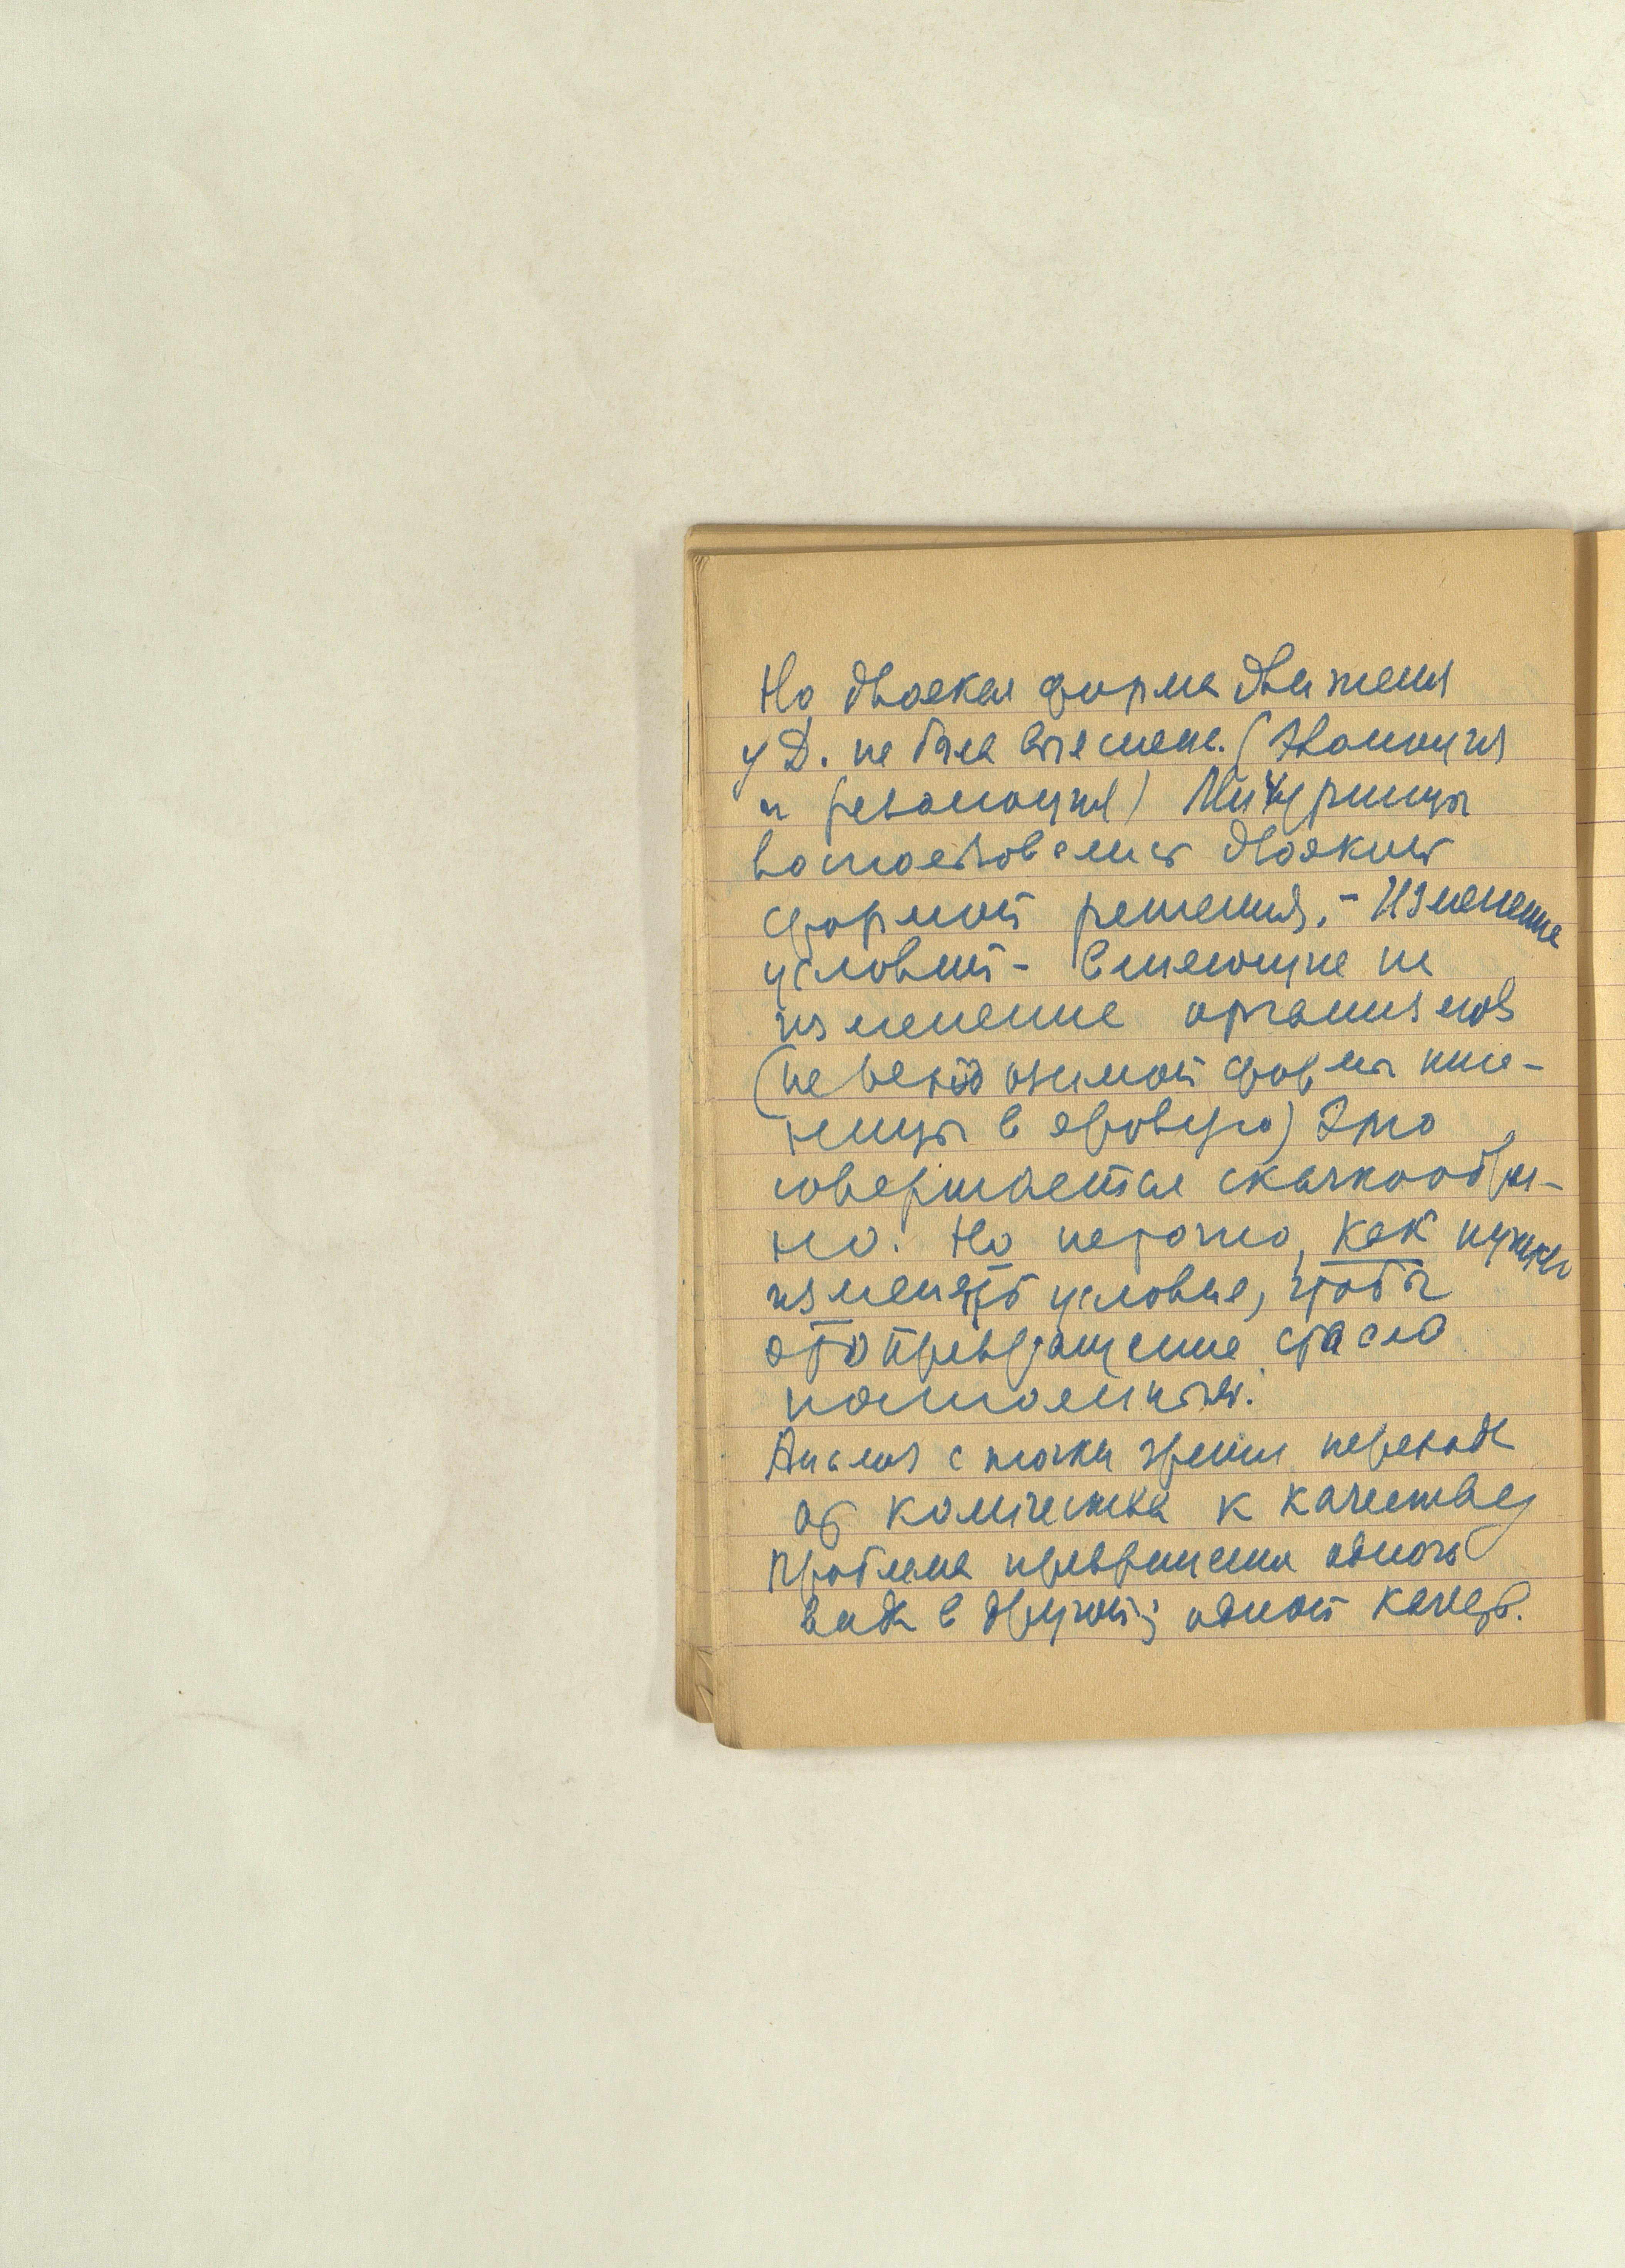 Но двоякая форма движения
у Д. не была выяснена. (Эволюция
и революция) Мичуринцы
двояким
формой решения. - Изменение
условий - влияющие на
изменение организмов
(перевод озимой формы пше-
ницы в яровую) Это
совершается скачкообраз-
но. Но неточно, как нужно
изменять условие, чтобы
это превращение стало
постоянным.
Анализ с точки зрения перехода
от количества к качеству
Проблема превращения одного
вида в другой; одной качеств.